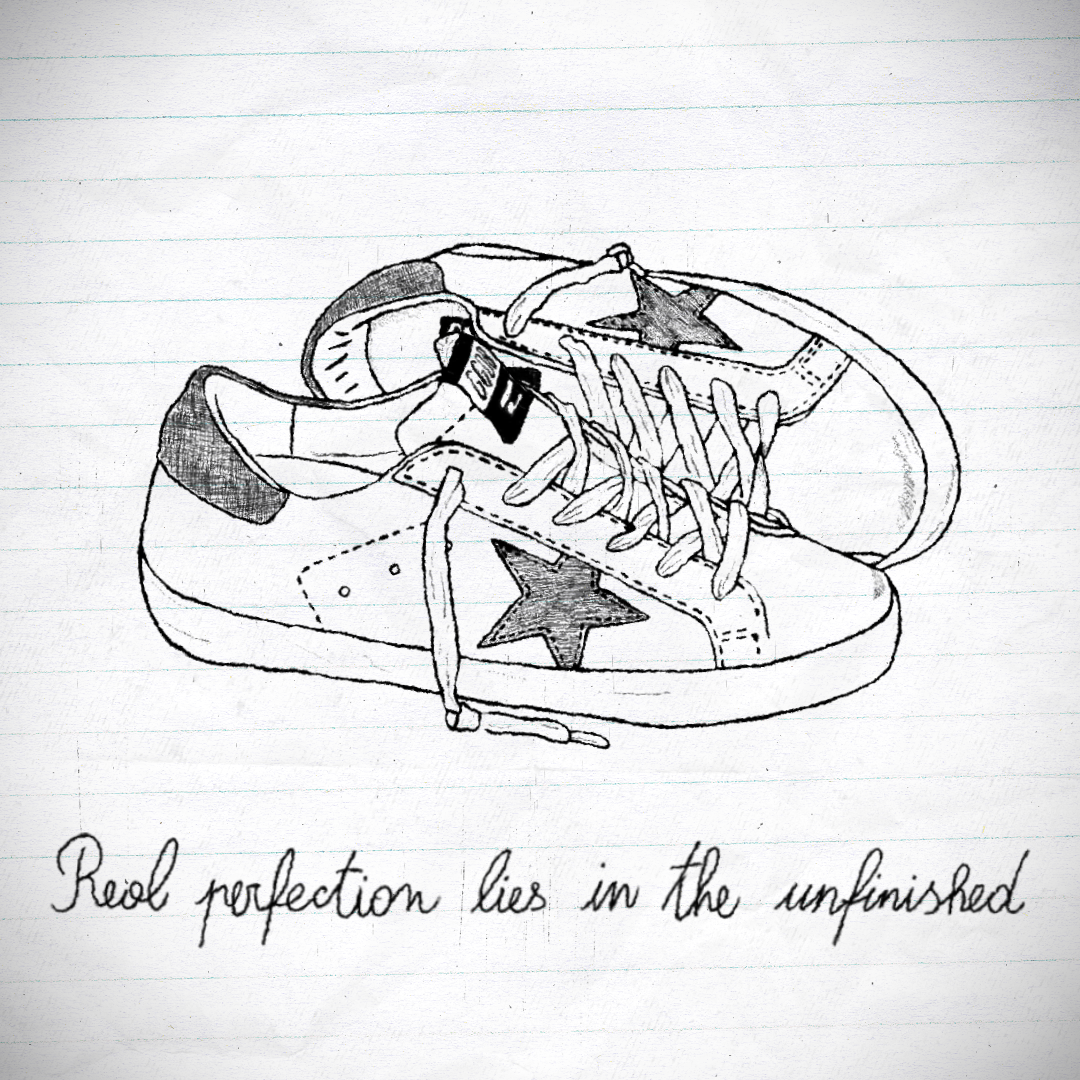 Real perfection lies in the unfinished